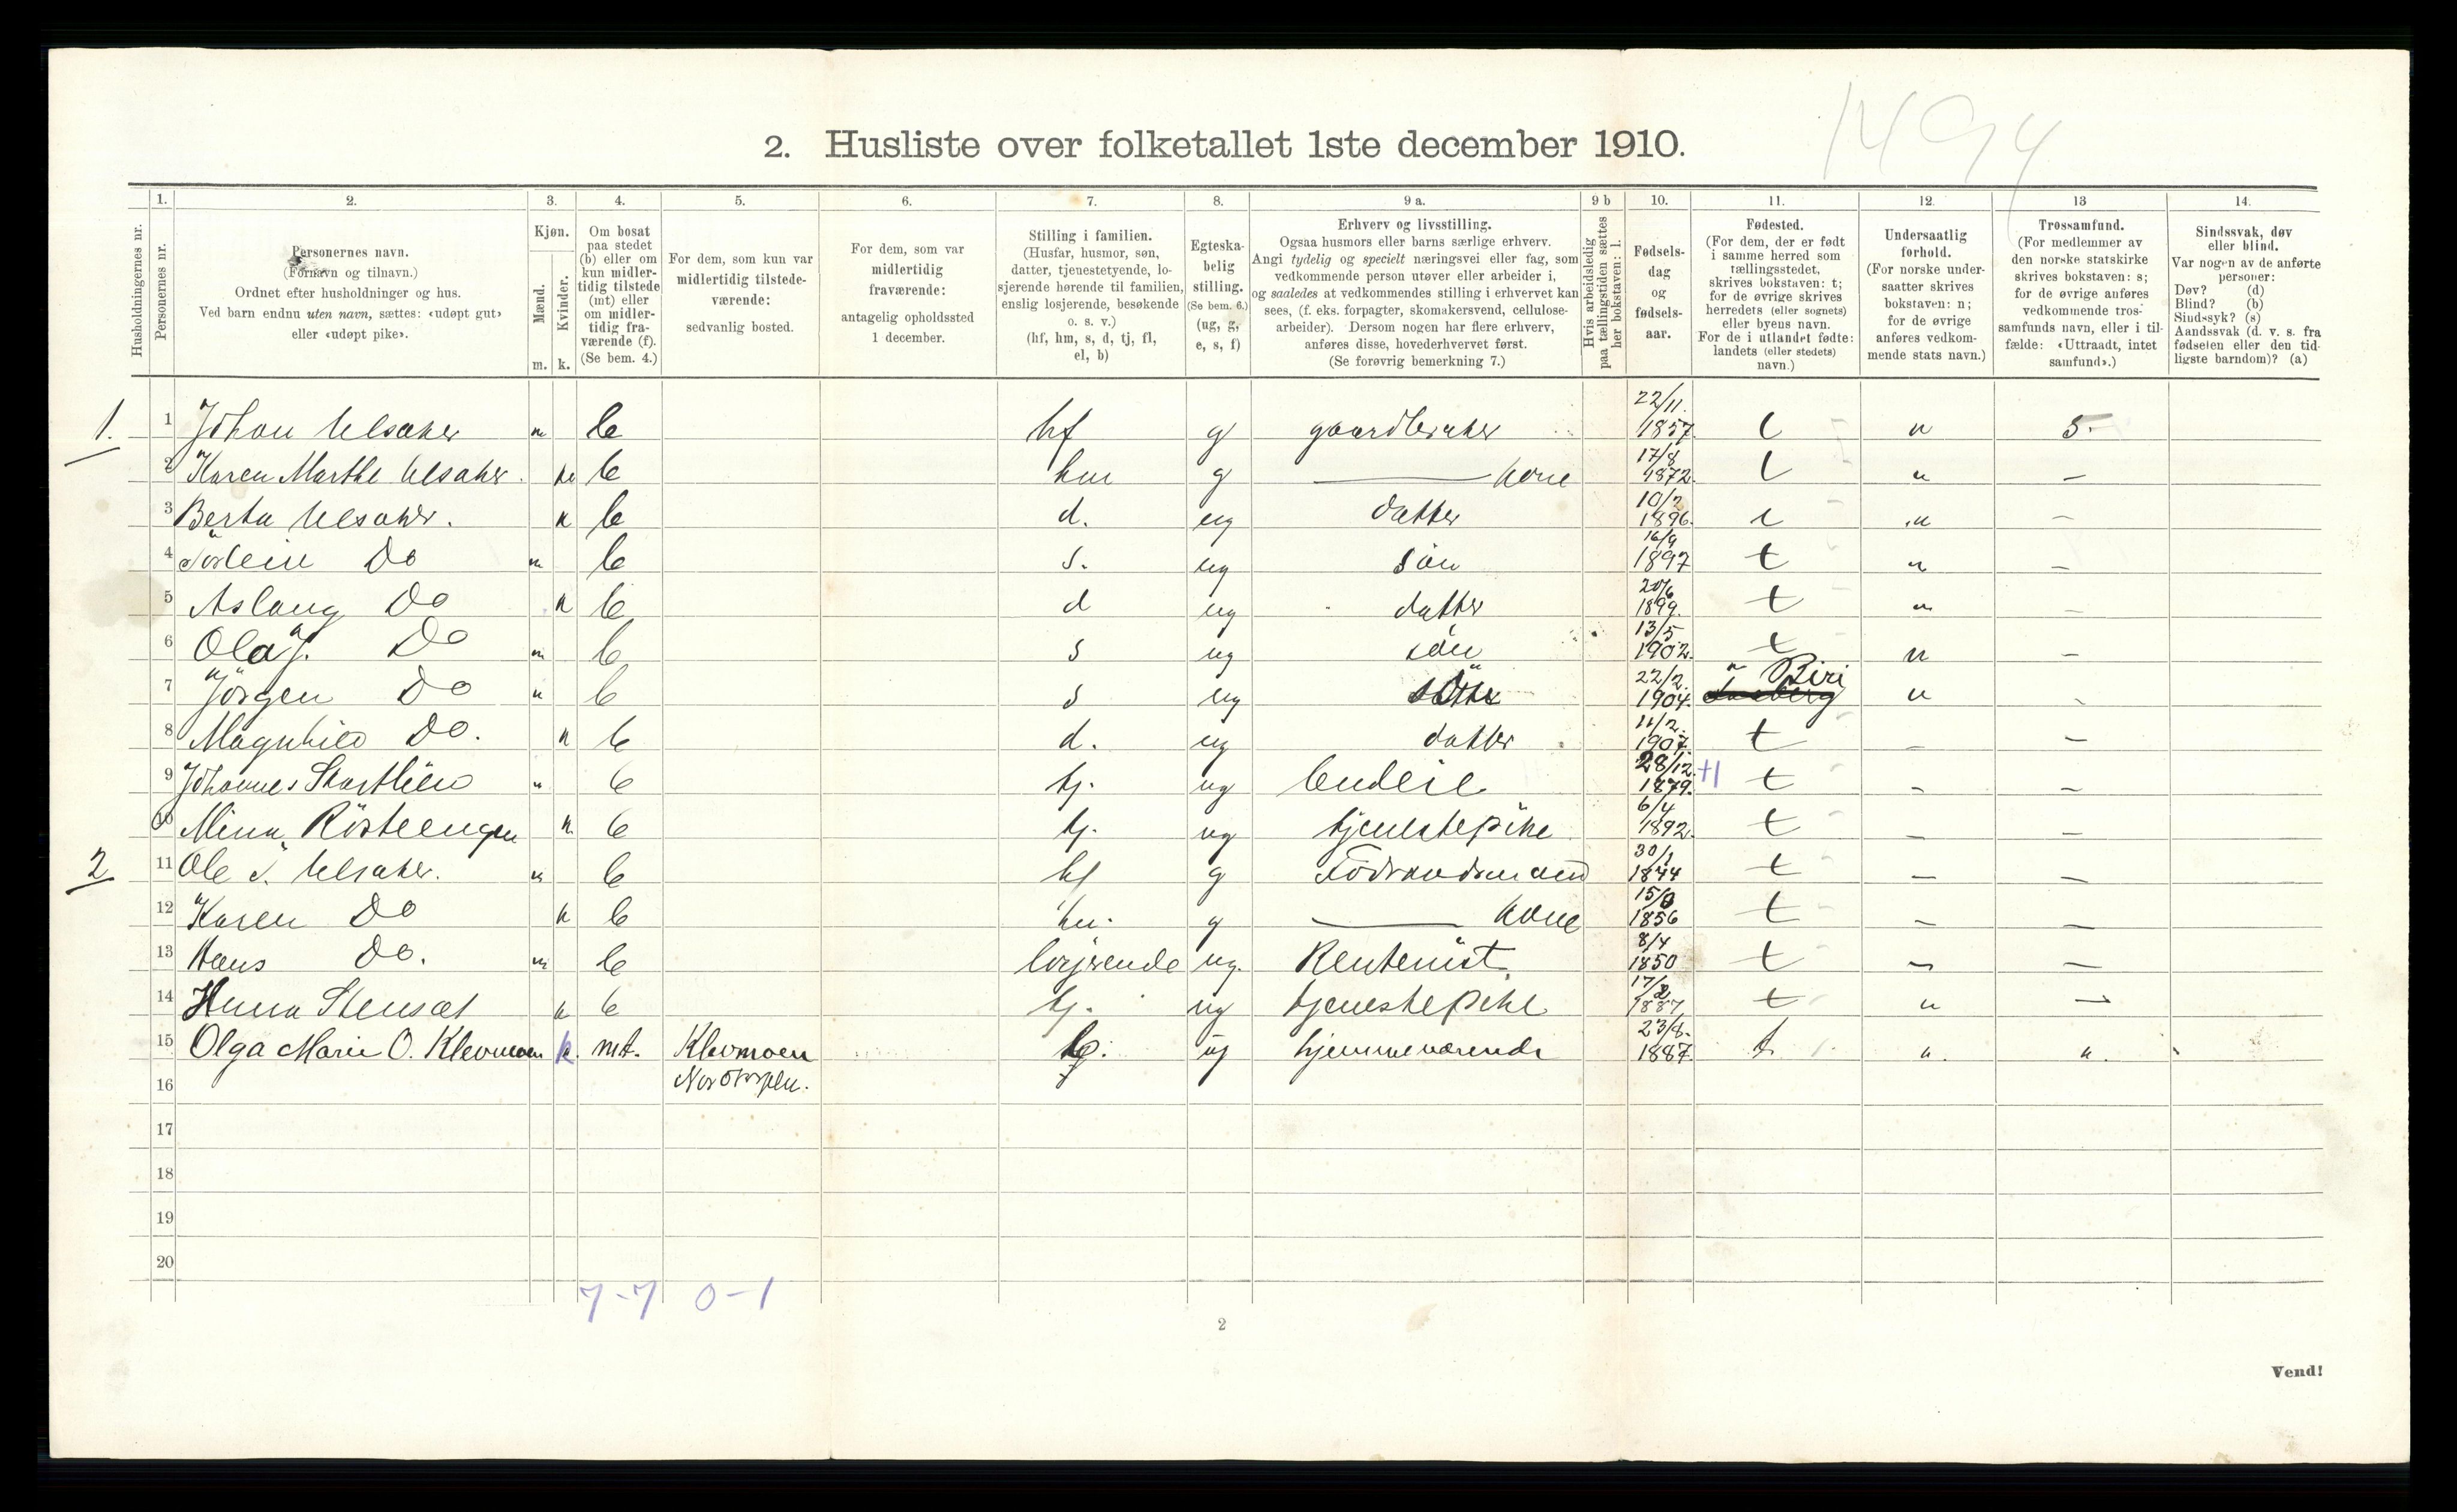 1494
2. Husliste over folketallet 1ste december 1910.
Husholdningernes nr.
1. Personernes nr.
2. Personernes navn.
(Fornavn og tilnavn.)
Ordnet efter husholdninger og hus.
Ved barn endnu uten navn, sættes: «udøpt gut»
eller «udøpt pike».
3. Kjøn.
Mænd. m.
Kvinder. k.
4. Om bosat
paa stedet
(b) eller om
kun midler-
tidig tilstede
(mt) eller
om midler-
tidig fra-
værende (f).
(Se bem. 4.)
5. For dem, som kun var
midlertidig tilstede-
værende:
sedvanlig bosted.
6. For dem, som var
midlertidig
fraværende:
antagelig opholdssted
1 december.
7. Stilling i familien.
(Husfar, husmor, søn,
datter, tjenestetyende, lo-
sjerende hørende til familien,
enslig losjerende, besøkende
o. s. v.)
(hf, hm, s, d, tj, fl,
el, b)
8. Egteska-
belig
stilling.
(Se bem. 6.)
(ug, g,
e, s, f)
9 a. Erhverv og livsstilling.
Ogsaa husmors eller barns særlige erhverv.
Angi tydelig og specielt næringsvei eller fag, som
vedkommende person utøver eller arbeider i,
og saaledes at vedkommendes stilling i erhvervet kan
sees, (f. eks. forpagter, skomakersvend, cellulose-
arbeider). Dersom nogen har flere erhverv,
anføres disse, hovederhvervet først.
(Se forøvrig bemerkning 7.)
9 b Hvis arbeidsledig
paa tællingstiden sættes
her bokstaven: l.
10. Fødsels-
dag
og
fødsels-
aar.
11. Fødested.
(For dem, der er født
i samme herred som
tællingsstedet,
skrives bokstaven: t;
for de øvrige skrives
herredets (eller sognets)
eller byens navn.
For de i utlandet fødte:
landets (eller stedets)
navn.)
12. Undersaatlig
forhold.
(For norske under-
saatter skrives
bokstaven: n;
for de øvrige
anføres vedkom-
mende stats navn.)
13 Trossamfund.
(For medlemmer av
den norske statskirke
skrives bokstaven: s;
for de øvrige anføres
vedkommende tros-
samfunds navn, eller i til-
fælde: «Uttraadt, intet
samfund».)
14. Sindssvak, døv
eller blind.
Var nogen av de anførte
personer:
Døv? (d)
Blind? (b)
Sindssyk? (s)
Aandssvak (d. v. s. fra
fødselen eller den tid-
ligste barndom)? (a)
1. 1 Johan Ulsaker m b hf g gaardbruker 22/11. 1857. t n s.
2 Karen Marthe Ulsaker. k b hm g — kone 17/8 1872. t n —
3 Berta Ulsaker. k b d. ug datter 10/2 1896. t n —
4 Torlein Do m b s. ug søn 16/9 1897 t n —
5 Aslaug Do k b d ug datter 20/6 1899. t n —
6 Ola J. Do m b s ug søn 13/5 1902. t n —
7 Jörgen Do m b s ug 22/2. 1904. Biri n -
8 Magnhild Do. k b d. ug datter 11/2. 1907. t — —
9 Johannes m b tj. ug 28/12. 1879. +1 t — —
10 Mina Rösteengen k. b tj. ug tjenestepike 6/4 1892. t — —
2 11 Ole Ulsaker. m b hf g Födraadsmand 30/1 1844 t — —
12 Karen Do k b hm. g — kone 1856 t — —
13 Hans Do. m b losjerende ug. Rentenist. 8/4 1850 t — —
14 Stensæt k b tj. ug tjenestepike 17/2 1887, t n —
15 Olga Marie O. Klevmoen k. mt. Klevmoen ug hjemmeværende 23/8. 1887. t. n. ".
16
17
18
19
20
7-7 0-1
2
Vend!